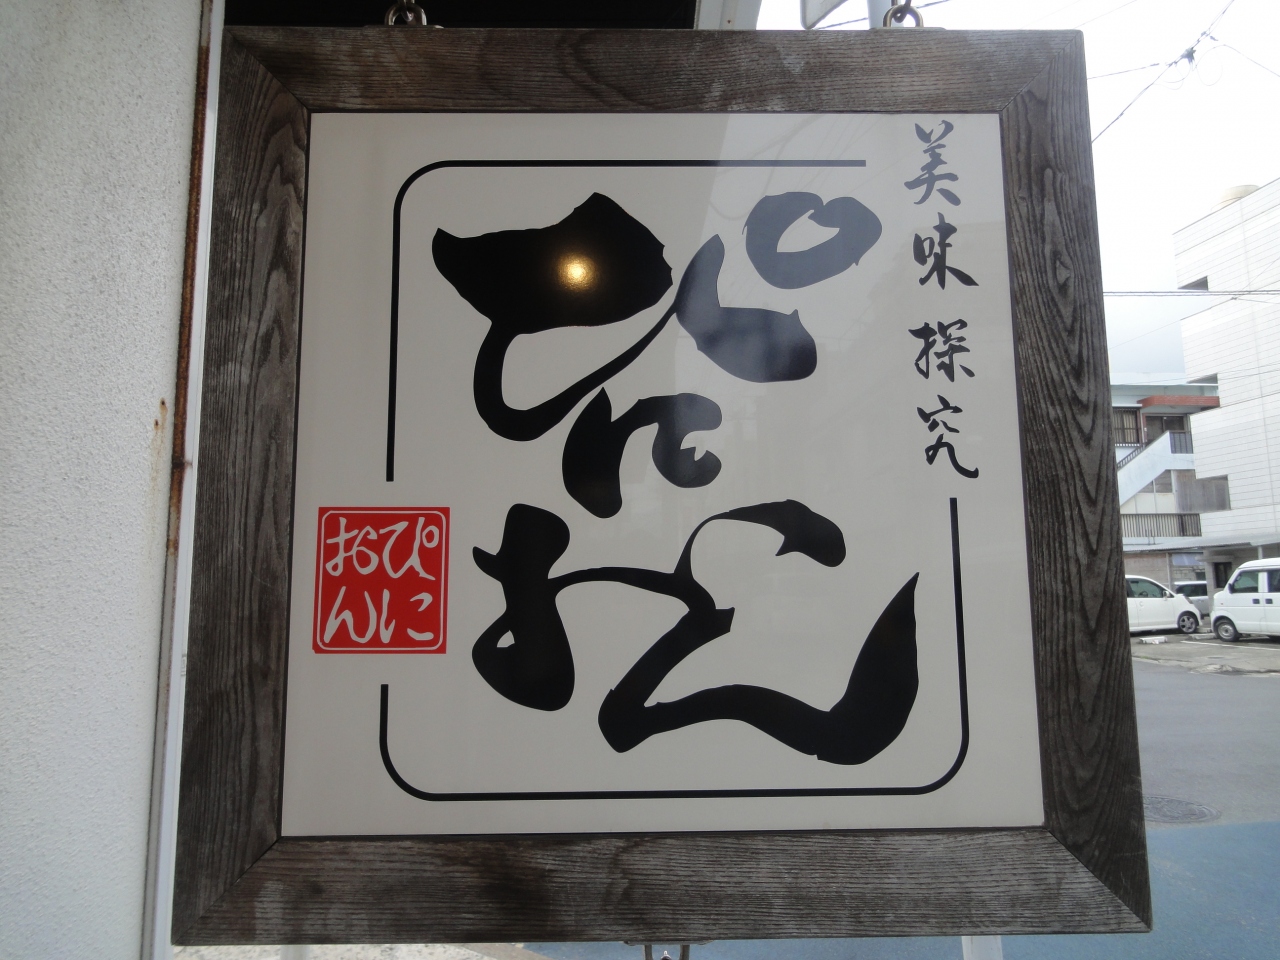 美味探究
ぴにおん
ぴに
おん